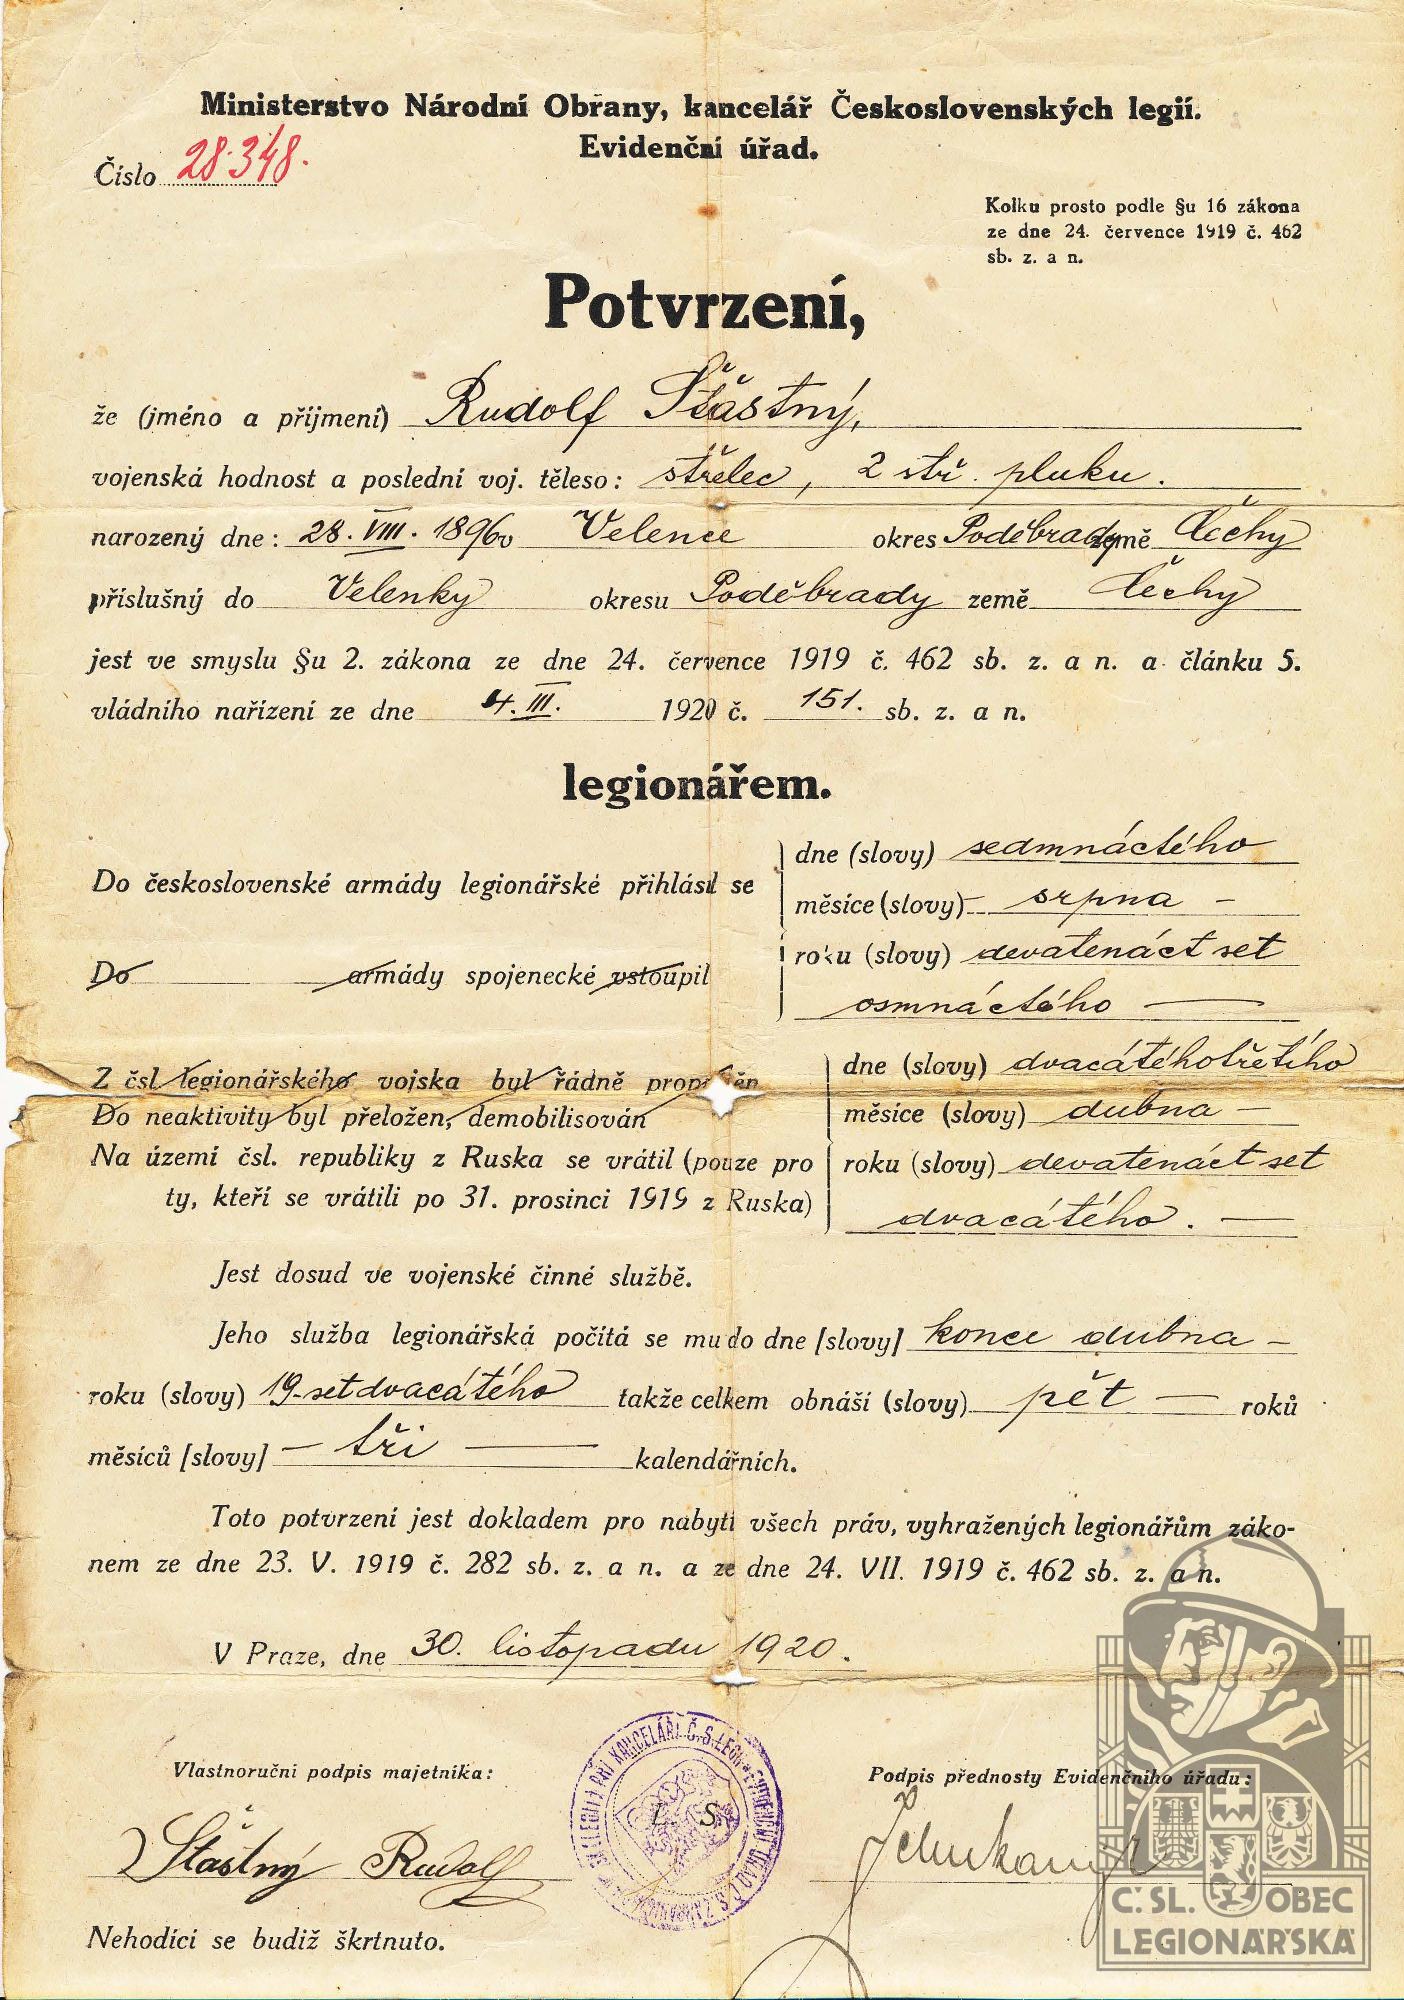 Ministerstvo Národní Obrany, kancelář Československých legií.
Evidenční úřad.
Číslo 28.348.
Kolku prosto podle §u 16 zákona
ze dne 24. července 1919 č. 462
sb. z. a n.
Potvrzení,
že (jméno a příjmení) Rudolf Šťastný,
vojenská hodnost a poslední voj. těleso: střelec, 2 stř. pluku.
narozený dne: 28. VIII. 1896 v Velence okres Poděbrady země Čechy
příslušný do Velenky okresu Poděbrady země Čechy
jest ve smyslu §u 2. zákona ze dne 24. července 1919 č. 462 sb. z. a n. a článku 5.
vládního nařízení ze dne 4. III. 1920 č. 151. sb. z. a n.
legionářem.
Do československé armády legionářské přihlásil se
Do armády spojenecké vstoupil
dne (slovy) sedmnáctého
měsíce (slovy) srpna –
roku (slovy) devatenáct set
osmnáctého —
Z čsl. legionářského vojska byl řádně propuštěn
Do neaktivity byl přeložen, demobilisován
Na území čsl. republiky z Ruska se vrátil (pouze pro
ty, kteří se vrátili po 31. prosinci 1919 z Ruska)
dne (slovy) dvacátéhotřetího
měsíce (slovy) dubna –
roku (slovy) devatenáct set
dvacátého. —
Jest dosud ve vojenské činné službě.
Jeho služba legionářská počítá se mu do dne [slovy] konce dubna –
roku (slovy) 19-set dvacátého takže celkem obnáší (slovy) pět — roků
měsíců [slovy] – tři — kalendářních.
Toto potvrzení jest dokladem pro nabytí všech práv, vyhražených legionářům záko-
nem ze dne 23. V. 1919 č. 282 sb. z. a n. a ze dne 24. VII. 1919 č. 462 sb. z. a n.
V Praze, dne 30. listopadu 1920.
Vlastnoruční podpis majetníka:
Podpis přednosty Evidenčního úřadu:
L S.
Šťastný Rudolf
Nehodící se budiž škrtnuto.
Č. SL. OBEC
LEGIONÁŘSKÁ